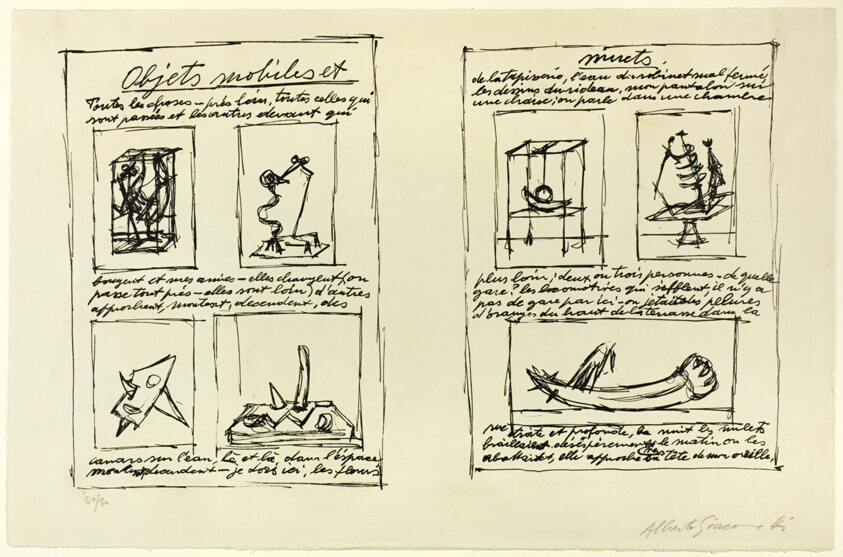 Objets mobiles et
Toutes les choses – près loin, toutes celles qui
sont passées et les autres devant qui
bougent et mes amies – elles changent (on
passe tout près – elles sont loin) d'autres
approchent, montent, descendent, des
canars sur l'eau, là et là, dans l'espace
montent descendent – je dors ici, les fleurs
muets.
de la tapisserie, l'eau du robinet mal fermé,
les dessins du rideau, mon pantalon sur
une chaise; on parle dans une chambre
plus loin; deux ou trois personnes – de quelle
gare? les locomotives qui sifflent il n'y a
pas de gare par ici – on jetait des pelures
d'oranges du haut de la terrasse dans la
rue droite et profonde, la nuit les mulets
braillaient désespérement, le matin on les
abattait, elle approche sa tête de mon oreille,
Alberto Giacometti